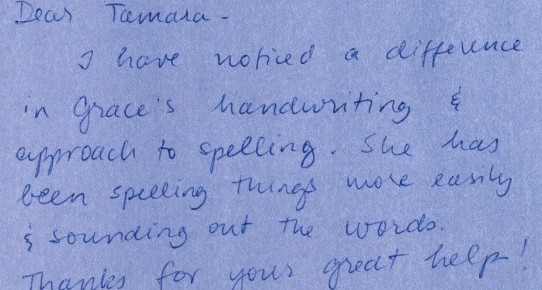 Dear Tamara -
I have noticed a difference
in Grace's handwriting &
approach to spelling. She has
been spelling things more easily
& sounding out the words.
Thanks for your great help!